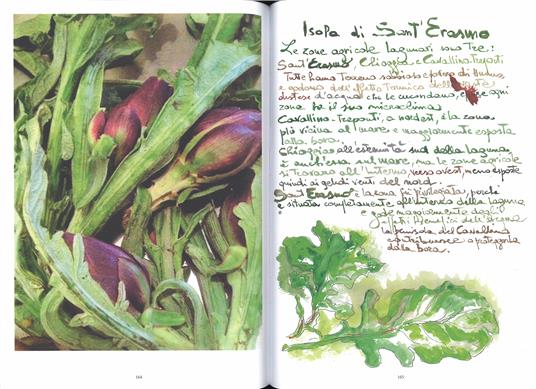 Isola di Sant'Erasmo
Le zone agricole lagunari sono tre:
Sant'Erasmo, Chioggia e Cavallino-Treporti
Tutte hanno terreno sabbioso e povero di humus
e godono dell'effetto termico delle vaste
distese d'acqua che le circondano, e ogni
zona ha il suo microclima
Cavallino-Treporti, a nordest, è la zona
più vicina al mare e maggiormente esposta
alla bora.
Chioggia all'estremità sud della laguna,
è anch'essa sul mare, ma le zone agricole
si trovano all'interno, verso ovest, meno esposte
quindi ai gelidi venti del nord.
Sant'Erasmo è la zona più privilegiata, perché
è situata completamente all'interno della laguna
e gode maggiormente degli
effetti benefici dell'acqua
la penisola del Cavallino
contribuisce a proteggerla
dalla bora.
164
165